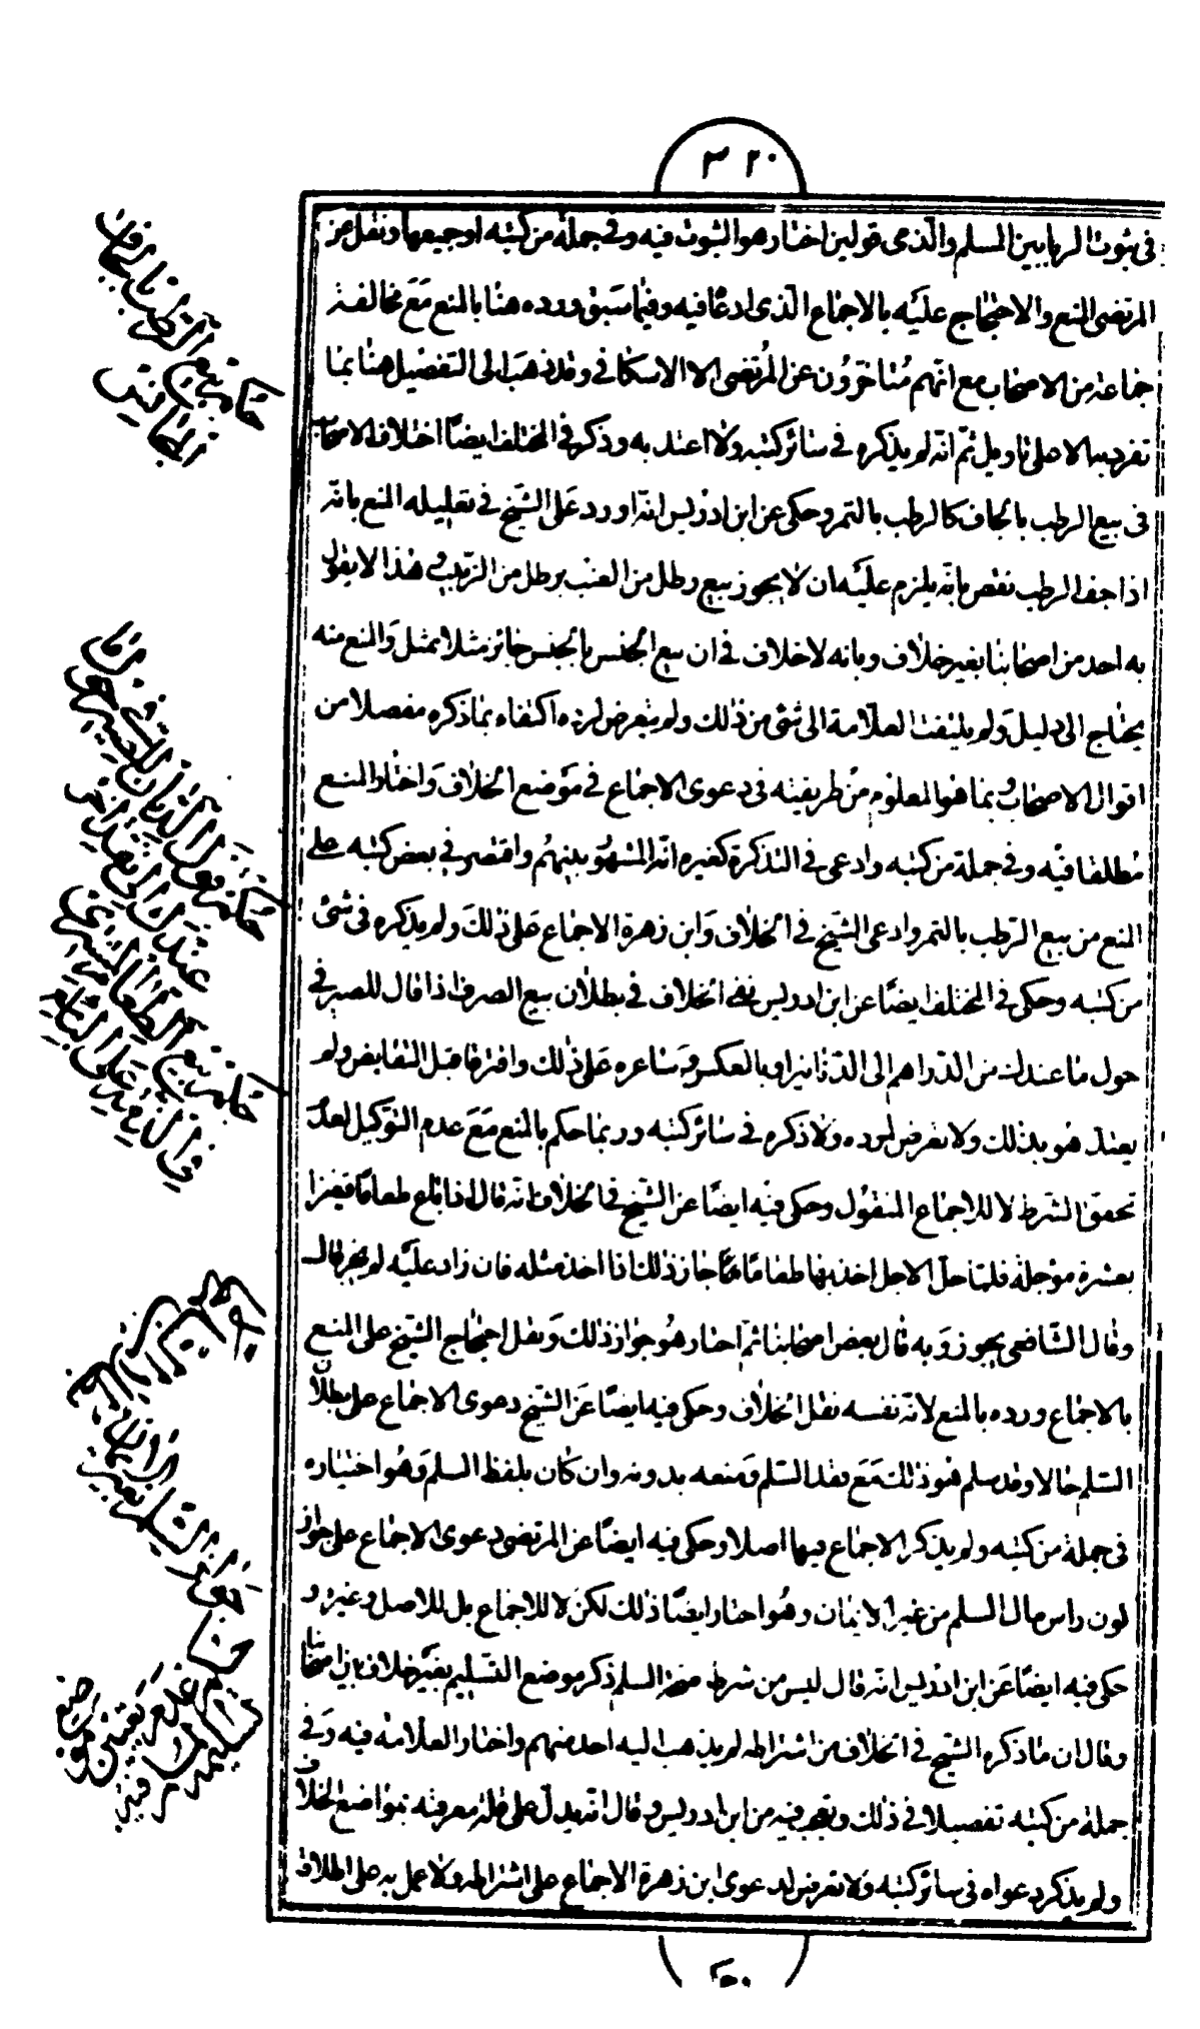 ٣٢٠
فى ثبوت الربا بين المسلم والذمى قولين اختار هو الثبوت فيه وفى جملة من كتبه او جميعها ونقل عن
المرتضى المنع والاحتجاج عليه بالاجماع الذى ادعا فيه وفيما سبق ورده هنا بالمنع مع مخالفة
جماعة من الاصحاب مع انهم متاخرون عن المرتضى الا الاسكافى وقد ذهب الى التفصيل هنا بما
تفرد به الا على تاويل ثم انه لم يذكره فى سائر كتبه ولا اعتد به وذكر فى المختلف ايضا اختلاف الاصحاب
فى بيع الرطب بالجاف كالرطب بالتمر وحكى عن ابن ادريس انه اورد على الشيخ فى تعليله المنع بانه
اذا جف الرطب نقص بانه يلزم عليه ان لا يجوز بيع رطل من العنب برطل من الزبيب وهذا لا يقول
به احد من اصحابنا بغير خلاف وبانه لا خلاف فى ان بيع الجنس بالجنس جائز مثلا بمثل والمنع منه
يحتاج الى دليل ولم يلتفت العلامة الى شئ من ذلك ولم يتعرض لرده اكتفاء بما ذكره مفصلا من
اقوال الاصحاب وبما هو المعلوم من طريقته فى دعوى الاجماع فى موضع الخلاف واختار المنع
مطلقا فيه وفى جملة من كتبه وادعى فى التذكرة كغيره انه المشهور بينهم واقتصر فى بعض كتبه على
المنع من بيع الرطب بالتمر وادعى الشيخ فى الخلاف وابن زهرة الاجماع على ذلك ولم يذكره فى شئ
من كتبه وحكى فى المختلف ايضا عن ابن ادريس نفى الخلاف فى بطلان بيع الصرف اذا قال للصيرفى
حول ما عندك من الدراهم الى الدنانير او بالعكس وساعره على ذلك وافترقا قبل التقابض ولم
يعتد هو بذلك ولا تعرض لرده ولا ذكره فى سائر كتبه وربما حكم بالمنع مع عدم التوكيل لعدم
تحقق الشرط لا للاجماع المنقول وحكى فيه ايضا عن الشيخ فى الخلاف انه قال اذا باع طعاما قفيزا
بعشرة مؤجلة فلما حل الاجل اخذ بها طعاما جاز ذلك اذا اخذ مثله فان زاد عليه لم يجز قال
وقال الشافعى يجوز وبه قال بعض اصحابنا ثم اختار هو جواز ذلك ونقل احتجاج الشيخ على المنع
بالاجماع ورده بالمنع لانه نفسه نقل الخلاف وحكى فيه ايضا عن الشيخ دعوى الاجماع على بطلان
السلم حالا وقد سلم هو ذلك مع قصد السلم ومنعه بدونه وان كان بلفظ السلم وهو اختياره
فى جملة من كتبه ولم يذكر الاجماع فيها اصلا وحكى فيه ايضا عن المرتضى دعوى الاجماع على جواز
كون راس مال السلم من غير الاثمان وهو اختار ايضا ذلك لكن لا للاجماع بل للاصل وغيره و
حكى فيه ايضا عن ابن ادريس انه قال ليس من شرط صحة السلم ذكر موضع التسليم بغير خلاف بين اصحابنا
وقال ان ما ذكره الشيخ فى الخلاف من اشتراطه لم يذهب اليه احد منهم واختار العلامة فيه وفى
جملة من كتبه تفصيلا فى ذلك وتعجب فيه من ابن ادريس وقال انه يدل على قلة معرفته بمواضع الخلاف
ولم يذكر دعواه فى سائر كتبه ولا تعرض لدعوى ابن زهرة الاجماع على اشتراطه ولا عمل به على اطلاقه
حكم بيع الرطب بالجاف